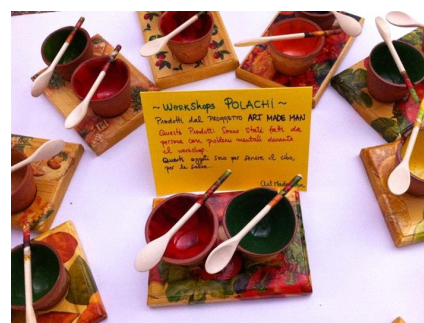 ~ WORKSHOPS POLACHI ~
Prodotti dal PROGGETTO ART MADE MAN
Questi Prodotti Sono Stati fatti da
persone con problemi mentali durante
il workshop.
Questi oggeti sono per servire il cibo,
per le salse.